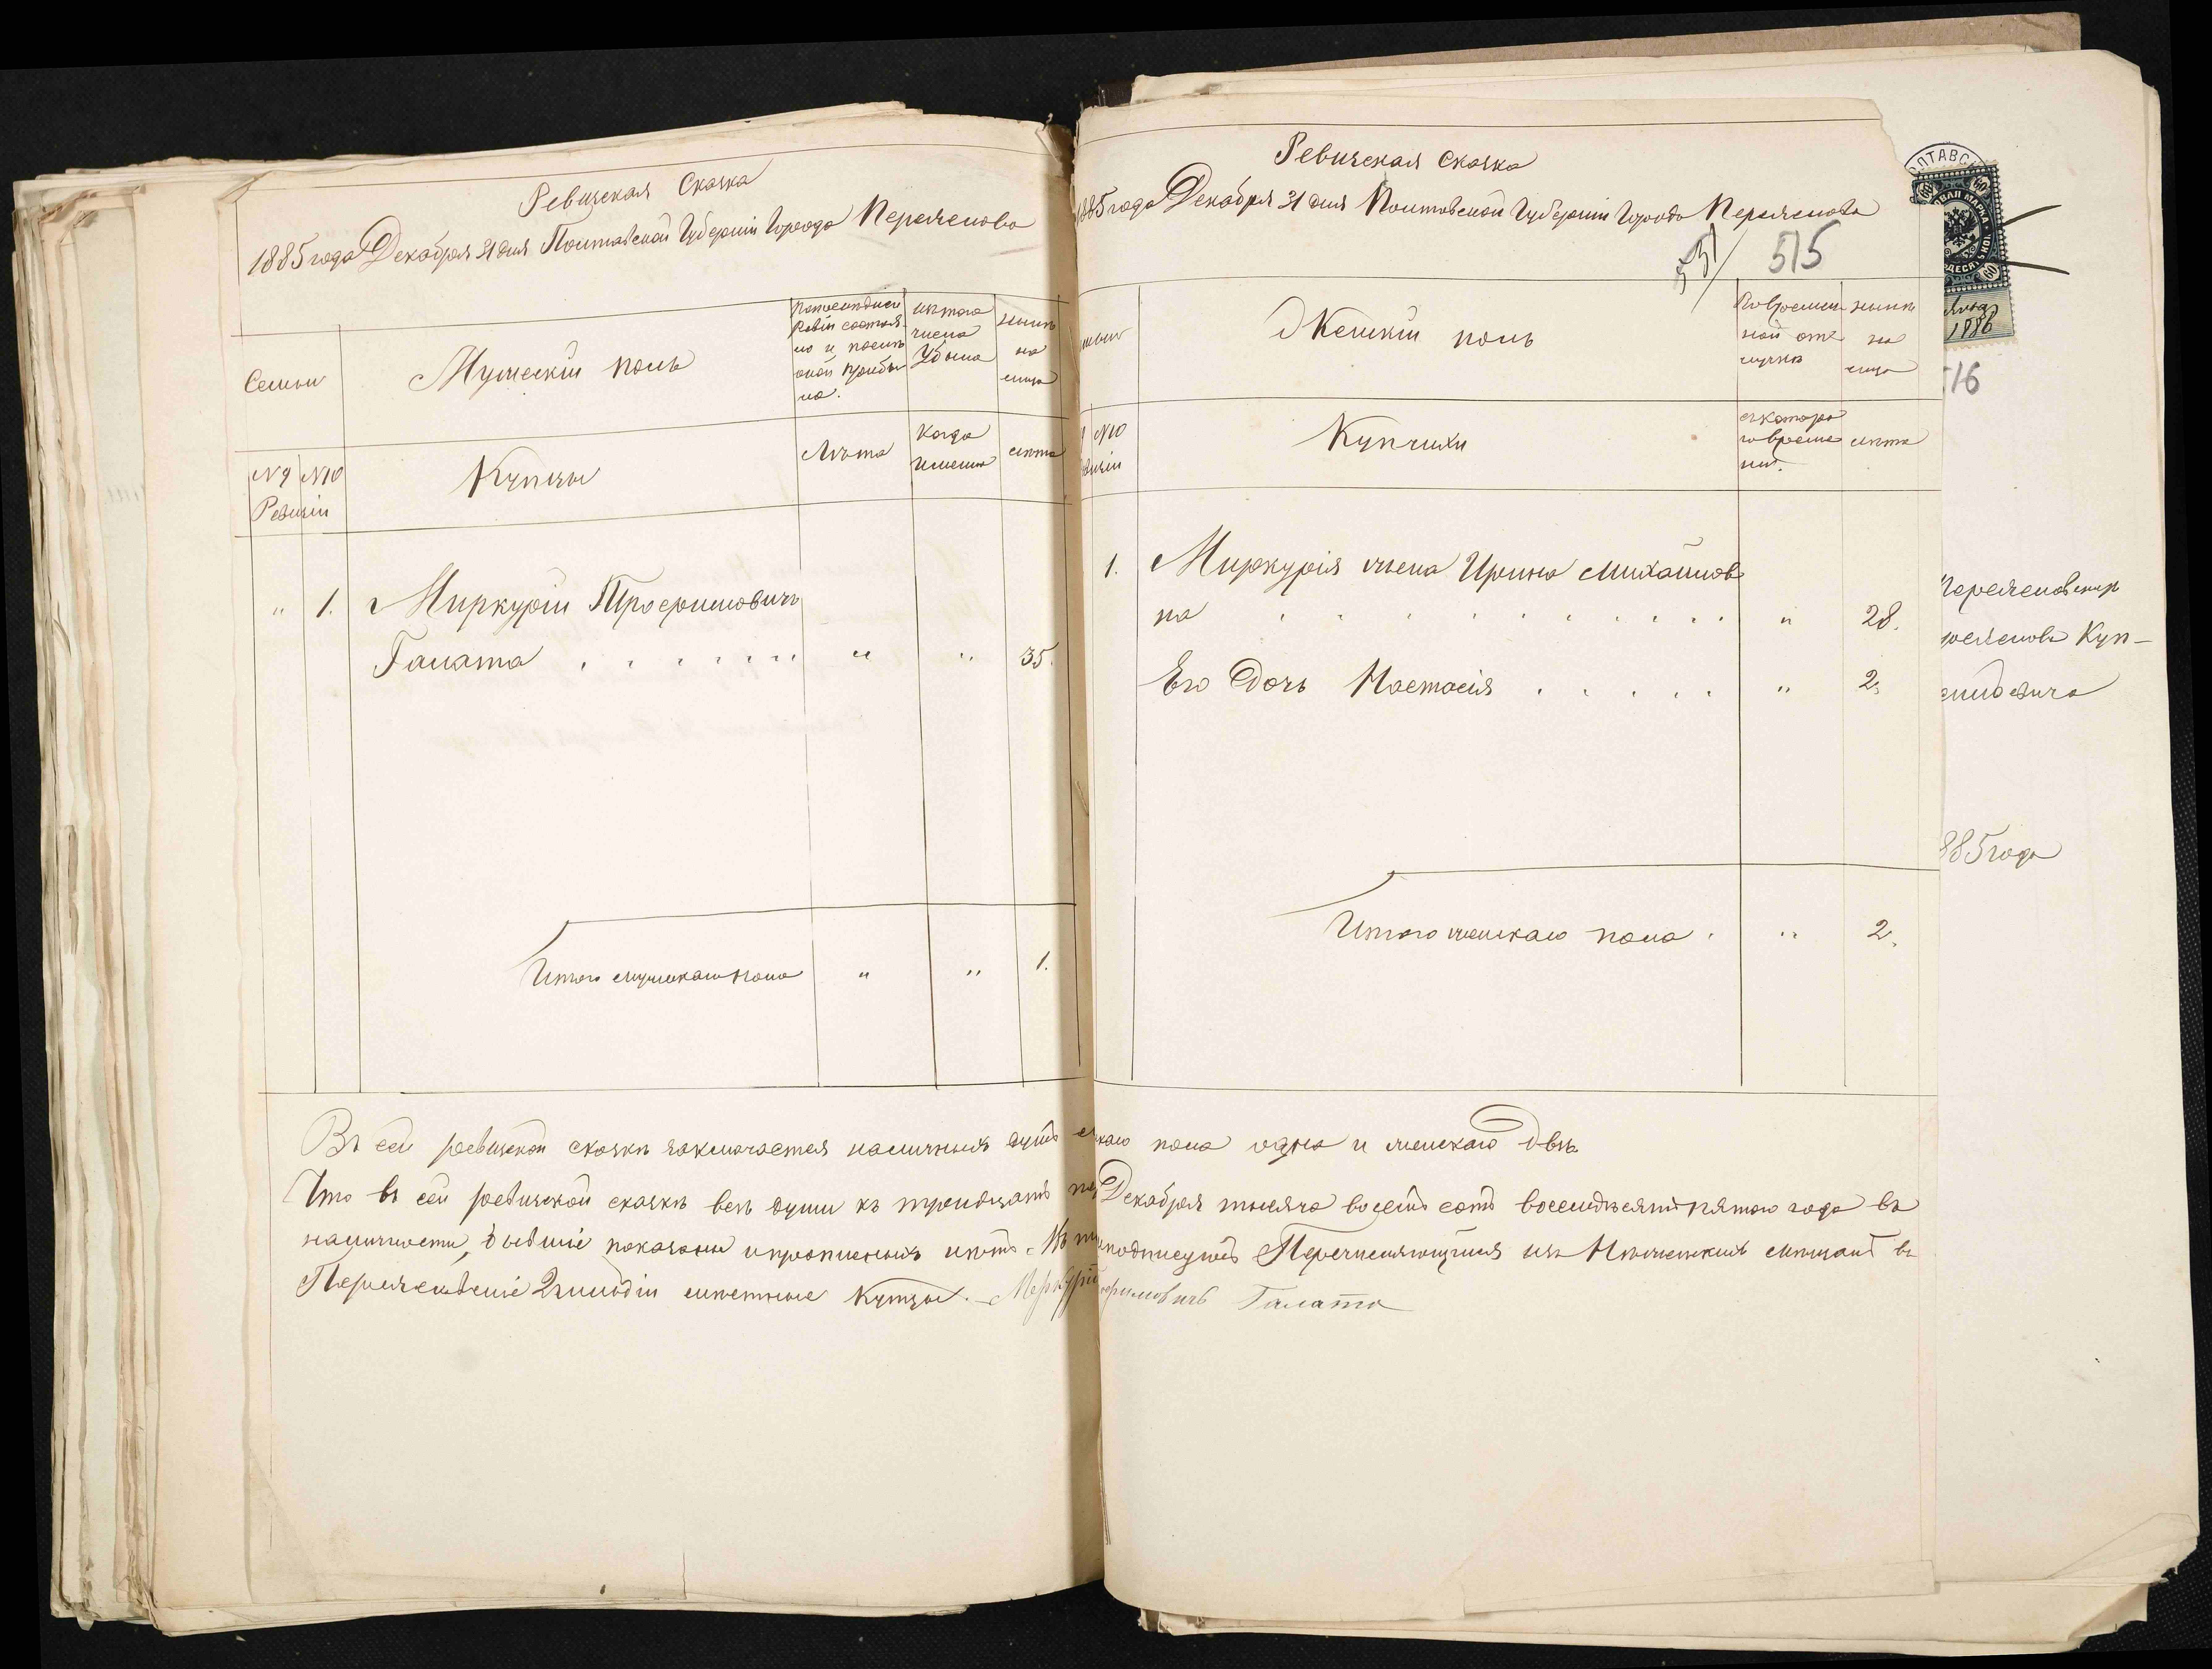 Ревизская Сказка
1885 года Декабря 31 дня Полтавской Губерніи Города Переяслова
Семьи
Мужескій полъ
По последней
Ревіи состоя-
ло и послѣ
оной прибы
ло.
изъ того
числа
Убыло
нынѣ
на
лицо
№ 9 № 10
Ревизіи
Купцы
Лѣта
Когда
именно
лѣта
" 1. Миркурій Трофимовичъ
Галата " " 35.
Итого мужескаго пола " " 1.
Ревизская Сказка
1885 года Декабря 31 дня Полтавской Губерніи Города Переяслова
551
515
Женскій полъ
Во времен-
ной от-
лучкѣ
нынѣ
на
лицо
№ 10
Купчихи
съ котора
го време
ни.
лѣта
1. Миркурія жена Ирина Михайлов
на " 28.
Его дочь Настасія " 2.
Итого женскаго пола " 2.
Въ сей ревизской сказкѣ заключается наличныхъ душъ
скаго пола одна и женскаго двѣ.
Что въ сей ревизской сказкѣ всѣ души къ тридцать
Декабря тысяча восемь сотъ восемдесять пятого года въ
наличности, бывшіе показаны и прописныхъ нѣтъ. Въ
подписуюсь Перечисляющійся изъ Нѣжинскихъ мѣщанъ въ
Переяславскіе 2й гильдіи купцы. Меркурій
фимовичъ Галата
ПОЛТАВС
60 60
МАРКА
60
1886
516
Куп-
885 года